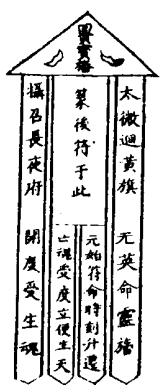 太微迴黃旗 无英命靈旛
篆後符于此
元始符命時刻升遷
亡魂受度立便生天
攝召長夜府 開度受生魂